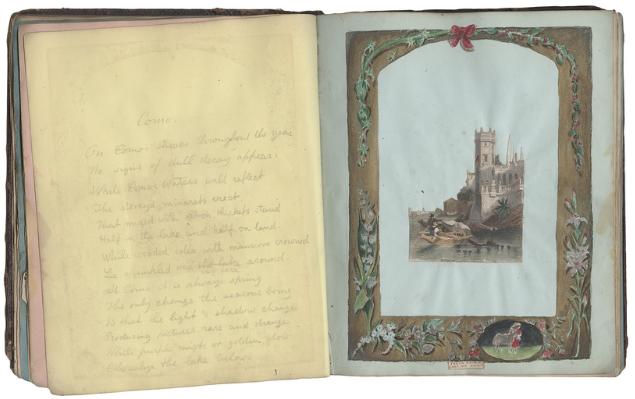 Como.
On Como's shores throughout the year
No signs of dull decay appear:
While Como's waters still reflect
The minarets erect
That mixed with thickets stand
Half in the lake and half on land.
While wooded isles with mansions crowned
Lie around.
At Como it is always spring
The only change the seasons bring
Is that the light & shadow change
Producing pictures rare and strange
While purple mists or golden glow
the lake below.